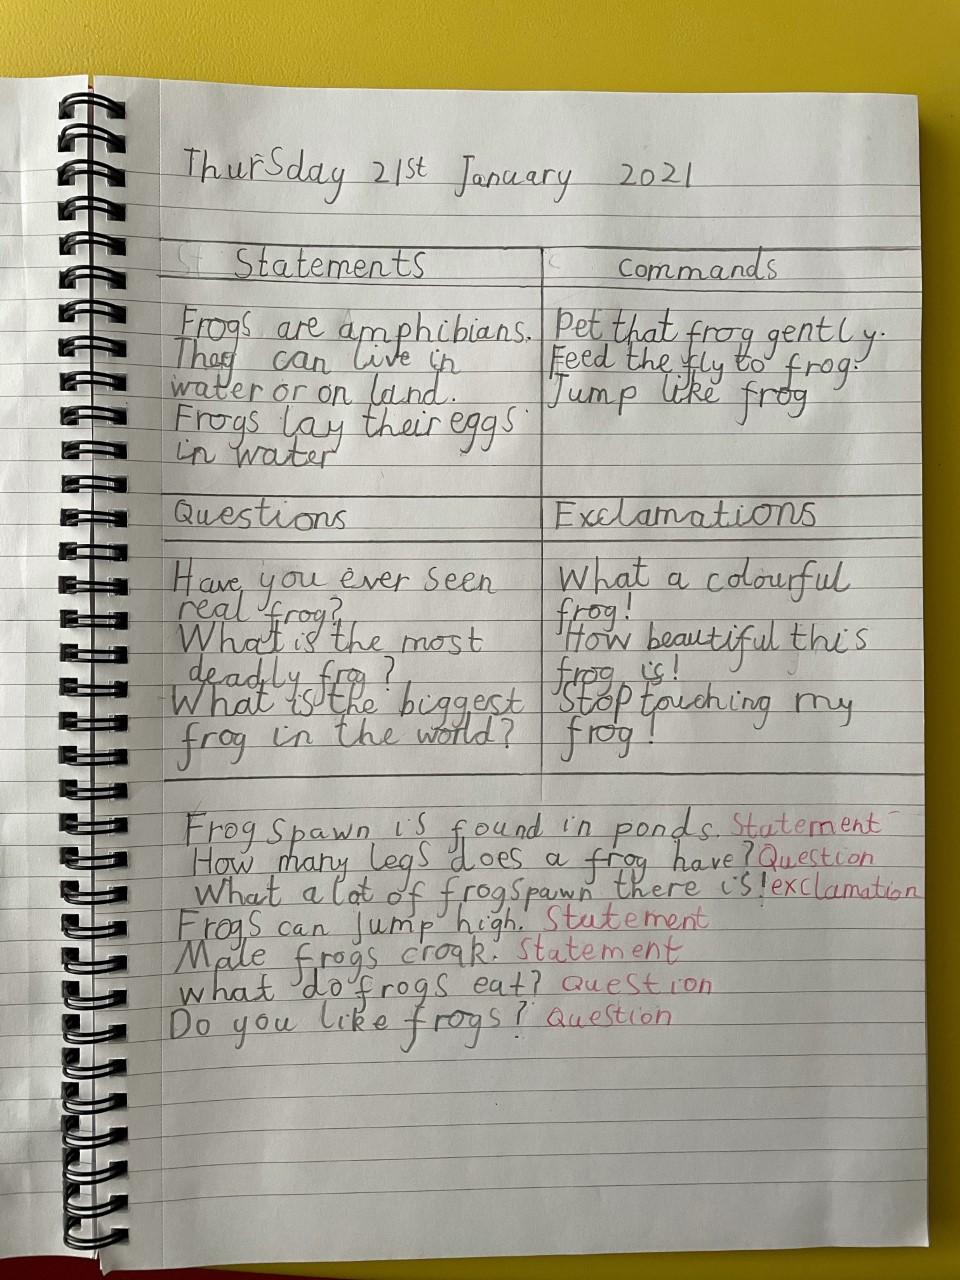 Thursday 21st January 2021
Statements
Commands
Frogs are amphibians.
They can live in
water or on land.
Frogs lay their eggs
in water
Pet that frog gently.
Feed the fly to frog.
Jump like frog
Questions
Exclamations
Have you ever seen
real frog?
What is the most
deadly frog?
What is the biggest
frog in the world?
What a colourful
frog!
How beautiful this
frog is!
Stop touching my
frog!
Frog spawn is found in ponds. Statement
How many legs does a frog have? Question
What a lot of frogspawn there is! exclamation
Frogs can jump high. Statement
Male frogs croak. Statement
what do frogs eat? Question
Do you like frogs? Question